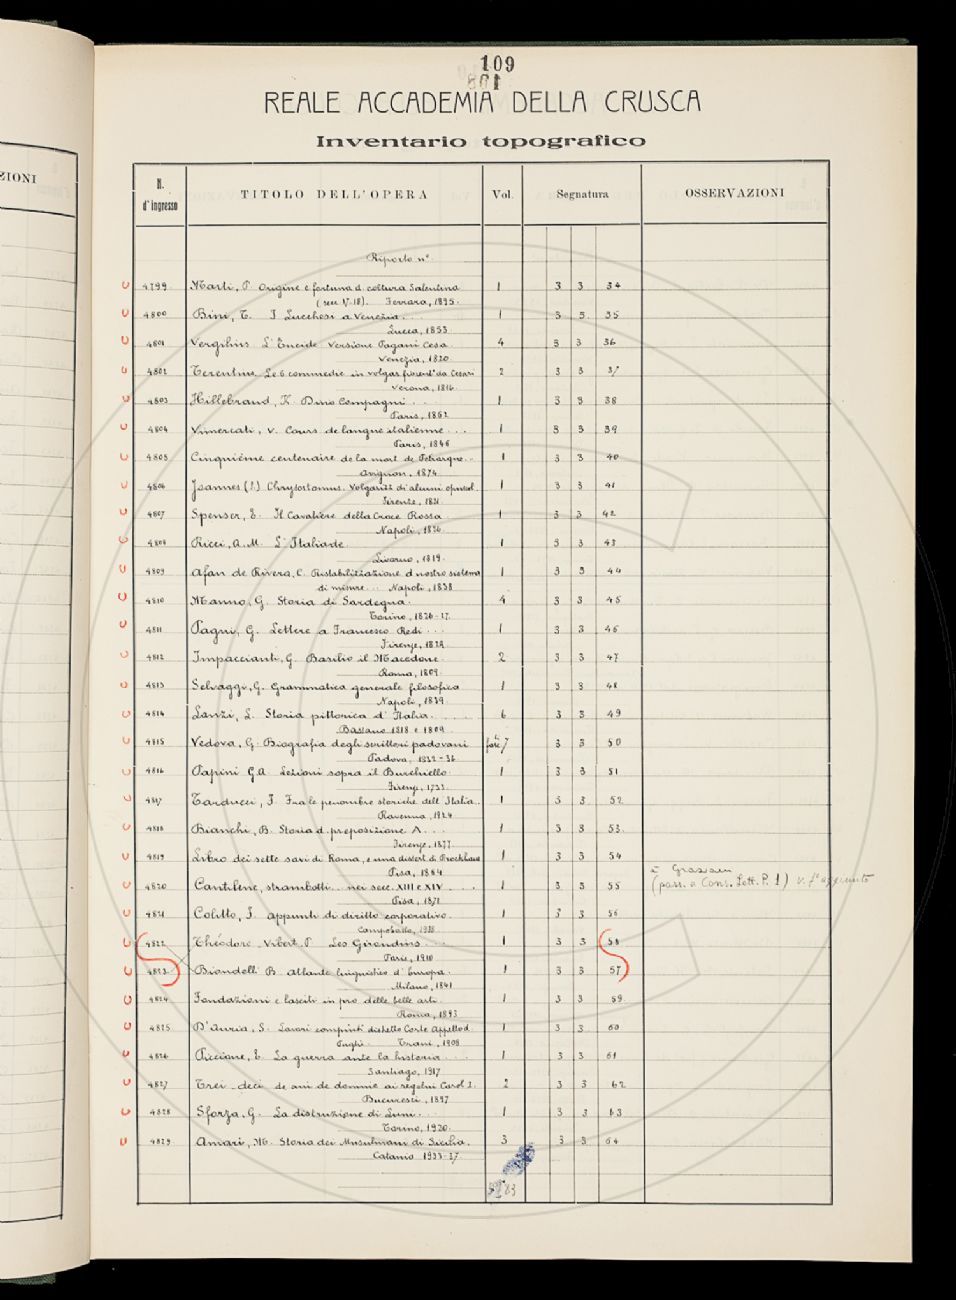 109
108
REALE ACCADEMIA DELLA CRUSCA
Inventario topografico
ZIONI
N. d'ingresso TITOLO DELL'OPERA Vol. Segnatura OSSERVAZIONI
Riporto n°
4799 Marti, P. Origine e fortuna d. coltura Salentina 1 3 3 34
(sec. V-18). Ferrara, 1895.
4800 Bini, T. I Lucchesi a Venezia... 1 3 3 35
Lucca, 1853.
4801 Verghius L'Eneide versione Pagani Cesa. 4 3 3 36
Venezia, 1820.
4802 Terentius Le 6 commedie in volgar fiorent° da Cesari 2 3 3 37
Verona, 1816.
4803 Hillebrand, K. Dino Compagni... 1 3 3 38
Paris, 1862
4804 Vimercati, V. Cours de langue italienne... 1 3 3 39
Paris, 1846
4805 Cinquième centenaire de la mort de Pétrarque... 1 3 3 40
Avignon, 1874
4806 Joannes (S.) Chrysostomus. Volgarizz. di alcuni opuscol. 1 3 3 41
Firenze, 1821.
4807 Spenser, E. Il Cavaliere della Croce Rossa. 1 3 3 42
Napoli, 1826.
4808 Ricci, A.M. L'Italiade. 1 3 3 43
Livorno, 1819.
4809 Afan de Rivera, C. Ristabilizzazione d. nostro sistema 1 3 3 44
di misure... Napoli, 1838
4810 Manno, G. Storia di Sardegna. 4 3 3 45
Torino, 1826-27.
4811 Pagni, G. Lettere a Francesco Redi... 1 3 3 46
Firenze, 1829.
4812 Impaccianti, G. Basilio il Macedone. 2 3 3 47
Roma, 1809.
4813 Selvaggi, G. Grammatica generale filosofica 1 3 3 48
Napoli, 1839.
4814 Lanzi, L. Storia pittorica d'Italia..... 6 3 3 49
Bassano 1818 e 1809.
4815 Vedova, G. Biografia degli scrittori padovani 7 3 3 50
Padova, 1832-36.
4816 Papini G.A. Lezioni sopra il Burchiello. 1 3 3 51
Firenze, 1733.
4817 Tarducci, F. Fra le penombre storiche dell'Italia.. 1 3 3 52
Ravenna, 1924
4818 Bianchi, B. Storia d. preposizione A... 1 3 3 53.
Firenze, 1877.
4819 Libro dei sette savi di Roma, e una dissert. di Brockhaus 1 3 3 54
Pisa, 1864
4820 Cantilene, strambotti.. nei secc. XIII e XIV.... 1 3 3 55 (pass. a Cons. Lett. P. 1) v. f° aggiunto
Pisa, 1871
4821 Colitto, F. Appunti di diritto corporativo. 1 3 3 56
Campobasso, 1928
4822 Théodore-Vibert, P. Les Girondins... 1 3 3 58
Paris, 1910
4823 Biondelli B. Atlante linguistico d'Europa. 1 3 3 57
Milano, 1841
4824 Fondazioni e lasciti in pro delle belle arti. 1 3 3 59
Roma, 1893
4825 D'Auria, S. Lavori compiuti distretto Corte Appello d. 1 3 3 60
Puglie. Trani, 1908
4826 Piccione, E. La guerra ante la historia... 1 3 3 61
Santiago, 1917
4827 Trei-deci de ani de domnie ai regelui Carol I. 2 3 3 62
Bucuresti, 1897
4828 Sforza, G. La distruzione di Luni... 1 3 3 63
Torino, 1920.
4829 Amari, M. Storia dei Musulmani di Sicilia. 3 3 3 64
Catania 1933-37.
83